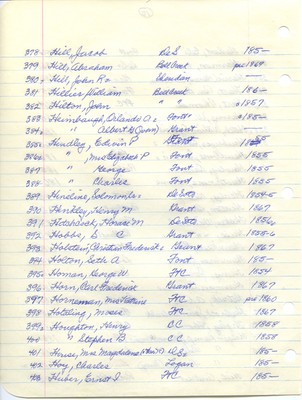 378 Hill, Jacob DeS 185-
379 Hill, Abraham Bellbrook pre 1869
380 Hill, John R. Sheridan —
381 Hillis, William Bellbrook 186-
382 Hilton, John " " a 1857
383 Heimbaugh, Orlando A. Font a 185-
384 " Albert G (Twin) Grant —
385 Hindley, Edwin P Font 1855
386 " Mrs Elizabeth P Font 1855
387 " George Font 1855
388 " Charles Font 1855
389 Hendine, Solomon DeSoto 1854-5
390 Hinkley, Henry M Grant 1867
391 Hotchkiss, Horace M DeSoto 1856
392 Hobbs, C Grant 1855-6
393 Holstein, Christian Frederick Grant 1867
394 Holton, Seth A Font 185-
395 Homan, George W. FtC 1854
396 Horn, Carl Frederick Grant 1867
397 Horneman, Mrs FtC pre 1860
398 Hoteling, Moses FtC 1867
399 Houghton, Henry C.C. 1858
400 " Stephen B C.C. 1858
401 House, Mrs Magdalena 185-
402 Hoy, Charles Logan 185-
403 Huber, Ernst I. FtC 185-